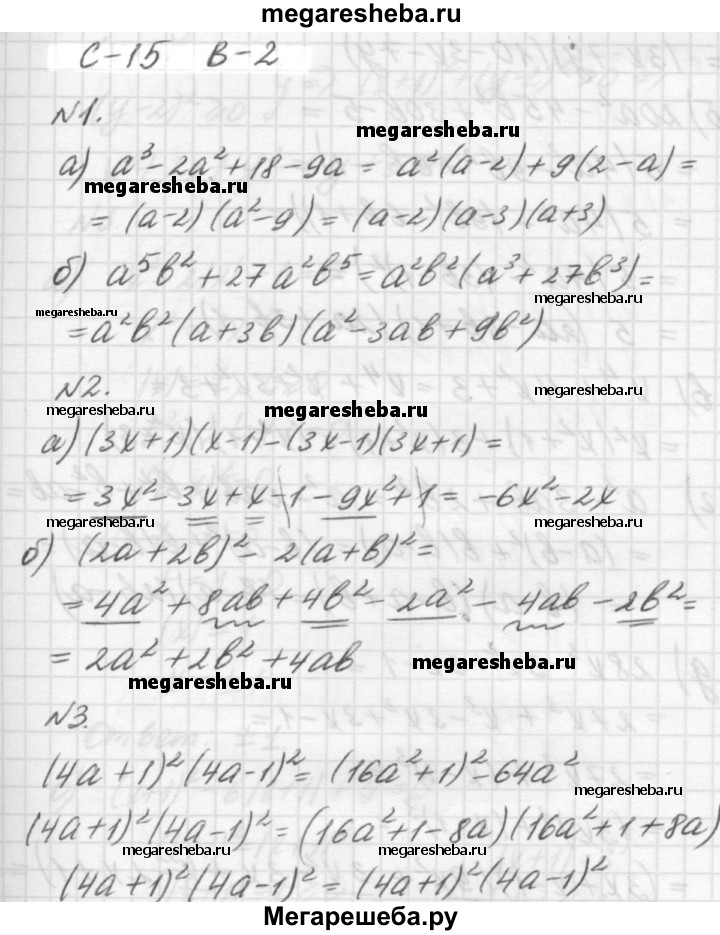 megaresheba.ru
С-15 В-2
№1.
megaresheba.ru
а) a³-2a²+18-9a = a²(a-2)+9(2-a)=
megaresheba.ru
= (a-2)(a²-9) = (a-2)(a-3)(a+3)
б) a⁵b²+27a²b⁵=a²b²(a³+27b³)=
megaresheba.ru
megaresheba.ru
=a²b²(a+3b)(a²-3ab+9b²)
№2.
megaresheba.ru
megaresheba.ru
megaresheba.ru
а)(3x+1)(x-1)-(3x-1)(3x+1)=
=3x²-3x+x-1-9x²+1= -6x²-2x
megaresheba.ru
megaresheba.ru
б) (2a+2b)²-2(a+b)²=
=4a²+8ab+4b²-2a²-4ab-2b²=
= 2a²+2b²+4ab
megaresheba.ru
megaresheba.ru
№3.
(4a+1)²(4a-1)²= (16a²+1)²-64a²
megaresheba.ru
(4a+1)²(4a-1)²=(16a²+1-8a)(16a²+1+8a)
megaresheba.ru
megaresheba.ru
(4a+1)²(4a-1)²= (4a+1)²(4a-1)²
Мегарешеба.ру